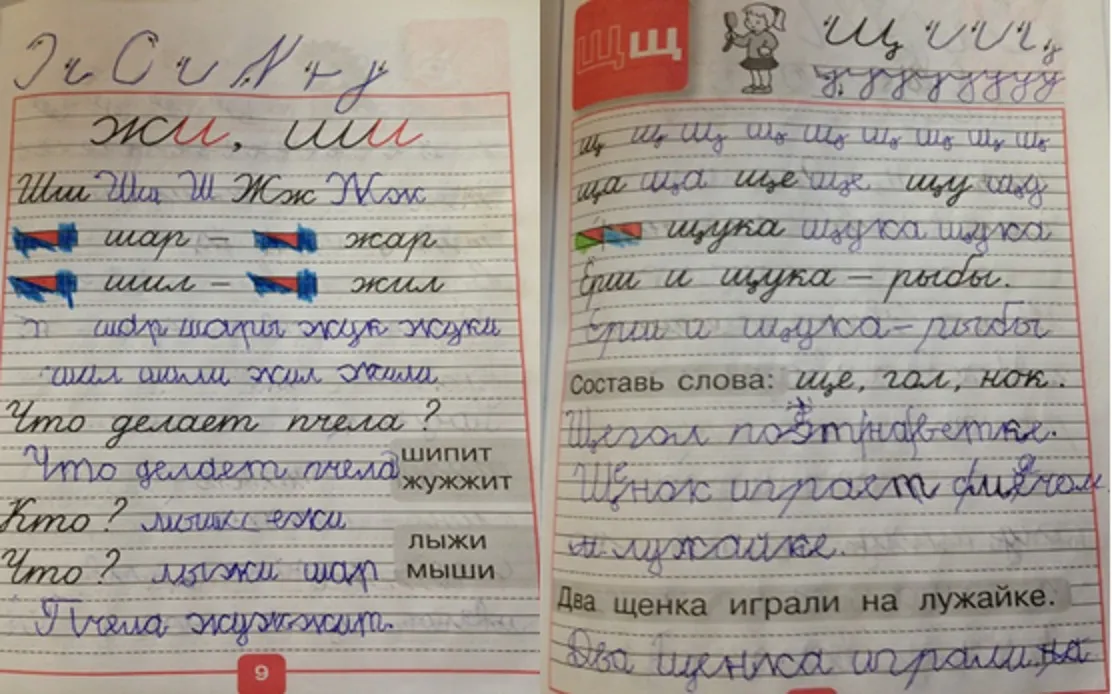 жи, ши
Шш Шш Ш Жж Жж
шар – жар
шил – жил
шар шары жук жуки
шил шили жил жили
Что делает пчела?
Что делает пчела
шипит
жужжит
Кто? мыши ежи
лыжи
Что? лыжи шар
мыши
Пчела жужжит.
9
Щ щ
щ щ щ щ щ щ щ щ
ща ща ще ще щу щу
щука щука щука
Ёрш и щука – рыбы.
Ёрш и щука – рыбы
Составь слова: ще, гол, нок.
Щегол на ветке.
Щенок играет
лужайке.
Два щенка играли на лужайке.
Два щенка играли на